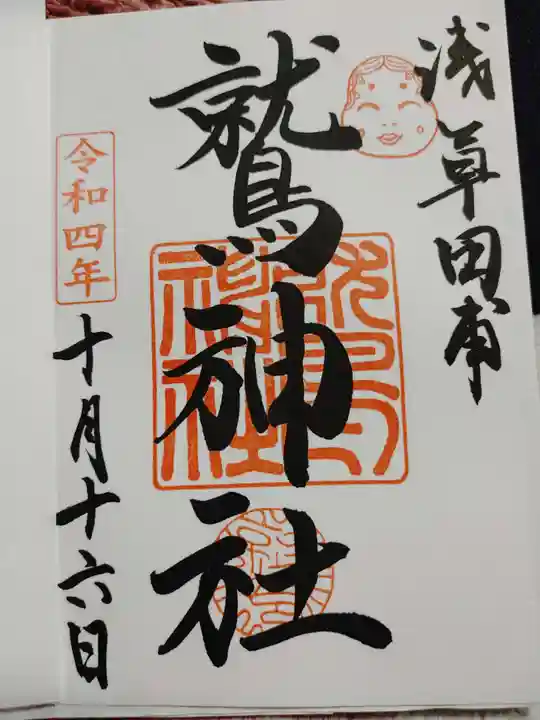 浅草田甫
鷲神社
令和四年
十月十六日